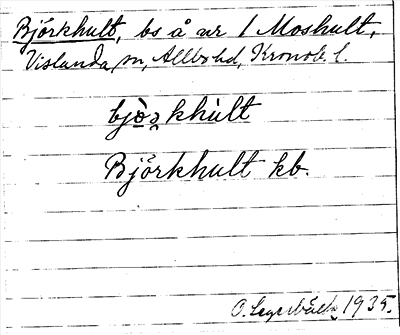 Björkhult, bs å nr 1 Moshult,
Vislanda sn, Allbo hd, Kronob. l.
Björkhult kb.
1935.